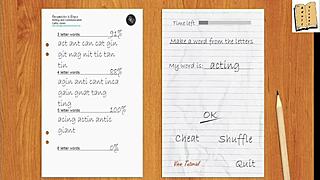 3 letter words 91%
act ant can cat gin
git nag nit tic tan
tin
4 letter words 88%
agin anti cant inca
gain gnat tang
ting
5 letter words 100%
acing actin antic
giant
6 letter words 0%
Time left
Make a word from the letters
My word is: acting
OK
Cheat Shuffle
View Tutorial Quit